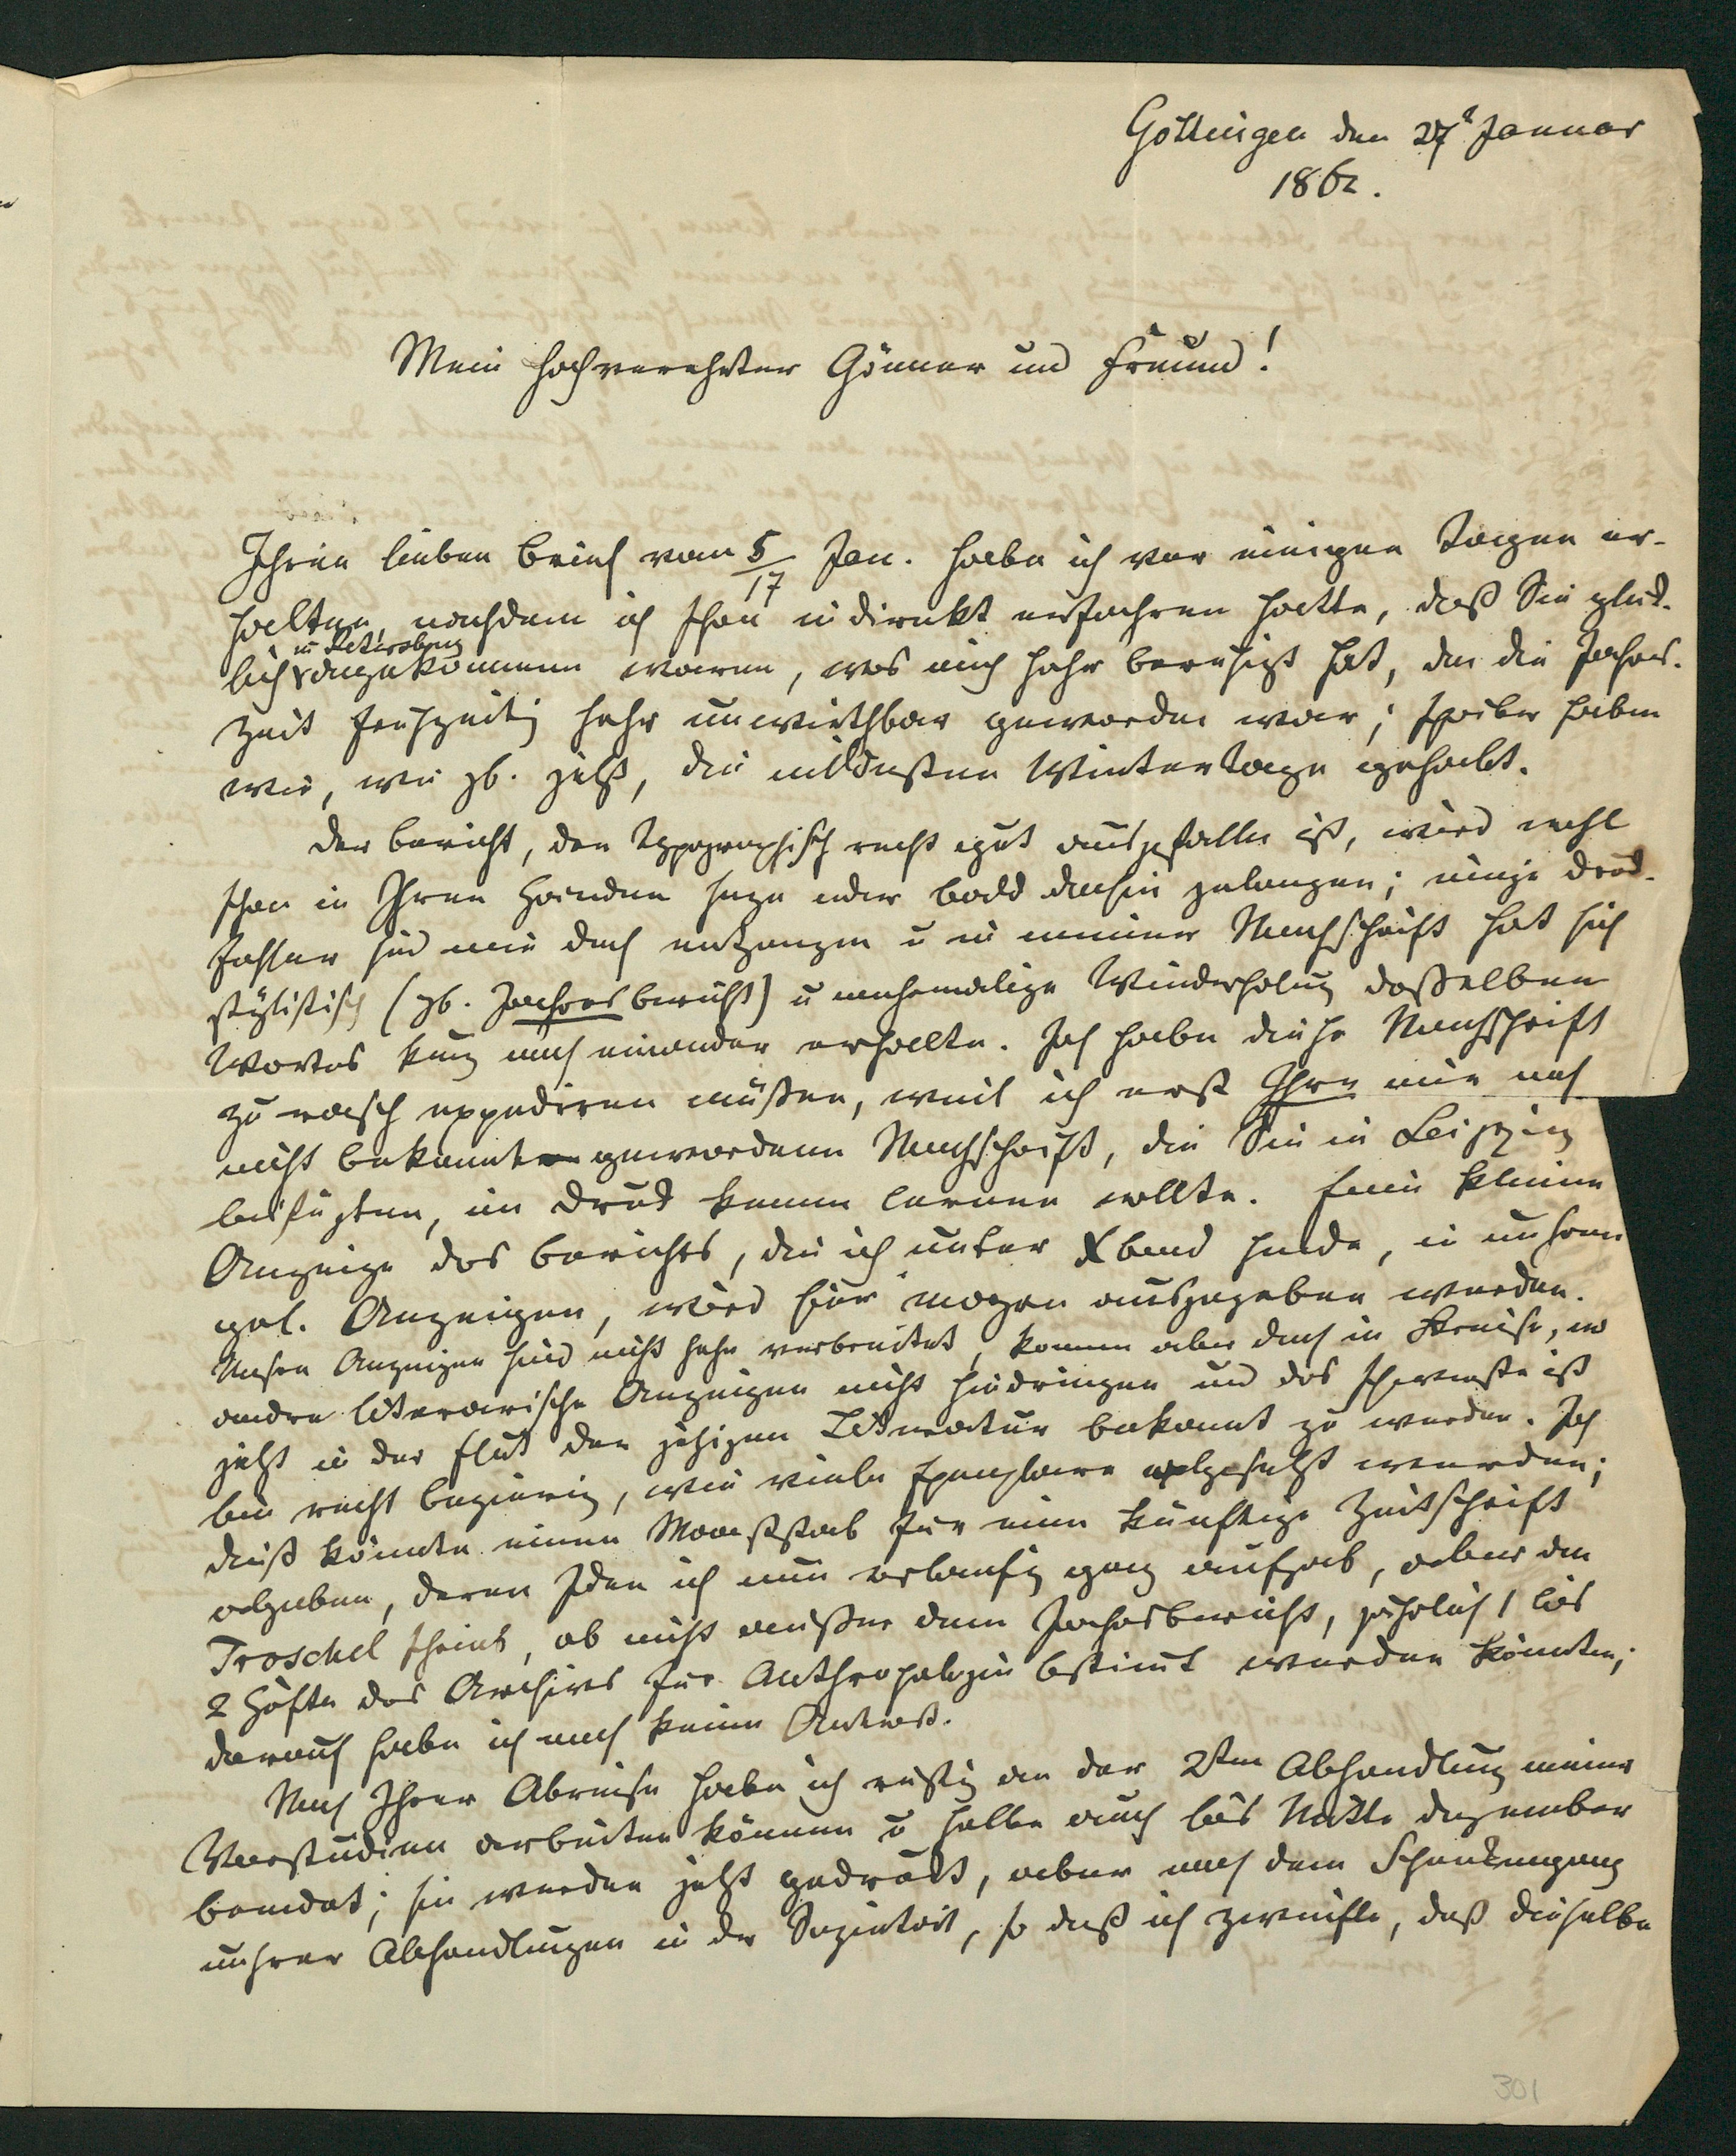 Göttingen den 27t Januar
1862.
Mein hochverehrter Gönner und Freund!
Ihren lieben Brief vom 5/17 Jan. habe ich vor einigen Tagen er-
halten, nachdem ich schon indirekt erfahren hatte, daß Sie glück-
lich in Petersburg angekommen waren, was mich sehr beruhigt hat, da die Jahres-
zeit frühzeitig sehr unwirthbar geworden war; später haben
wir, wie zb. jetzt, die mildesten Wintertage gehabt.
Der Bericht, der typographisch recht gut ausgefallen ist, wird wohl
schon in Ihren Händen seyn oder bald dahin gelangen; einige Druck-
fehler sind mir doch entgangen u in meiner Nachschrift hat sich
stylistisch (zb. Jahresbericht) u mehrmalige Wiederholung desselben
Wortes kurz nach einander erhalten. Ich habe diese Nachschrift
zu rasch expediren müßen, weil ich erst Ihre mir noch
nicht bekannt gewordene Nachschrift, die Sie in Leipzig
beifügten, im Druck kennen lernen wollte. Eine kleine
Anzeige des Berichts, die ich unter Xband sende, in unseren
gel. Anzeigen, wird hier morgen ausgegeben werden.
Unsere Anzeigen sind nicht sehr verbreitet, kommen aber doch in Kreise, wo
andre literarische Anzeigen nicht hindringen und das schwerste ist
jetzt in der Flut der jetzigen Literatur bekannt zu werden. Ich
bin recht begierig, wie viele Exemplare abgesetzt werden;
dieß könnte einen Maasstab für eine künftige Zeitschrift
abgeben, deren Idee ich nun vorläufig ganz aufgab, aber an
Troschel schrieb, ob nicht außer dem Jahresbericht, jährlich 1 bis
2 Hefte des Archives für Anthropologie bestimmt werden könnten;
darauf habe ich noch keine Antwort.
Nach Ihrer Abreise habe ich rüstig an der 2ten Abhandlung meiner
Vorstudien arbeiten können u selbe auch bis Mitte Dezember
beendet; sie werden jetzt gedruckt, aber nach dem Schneckengang
unsrer Abhandlungen in der Sozietät, so daß ich zweifle, daß dieselbe
301